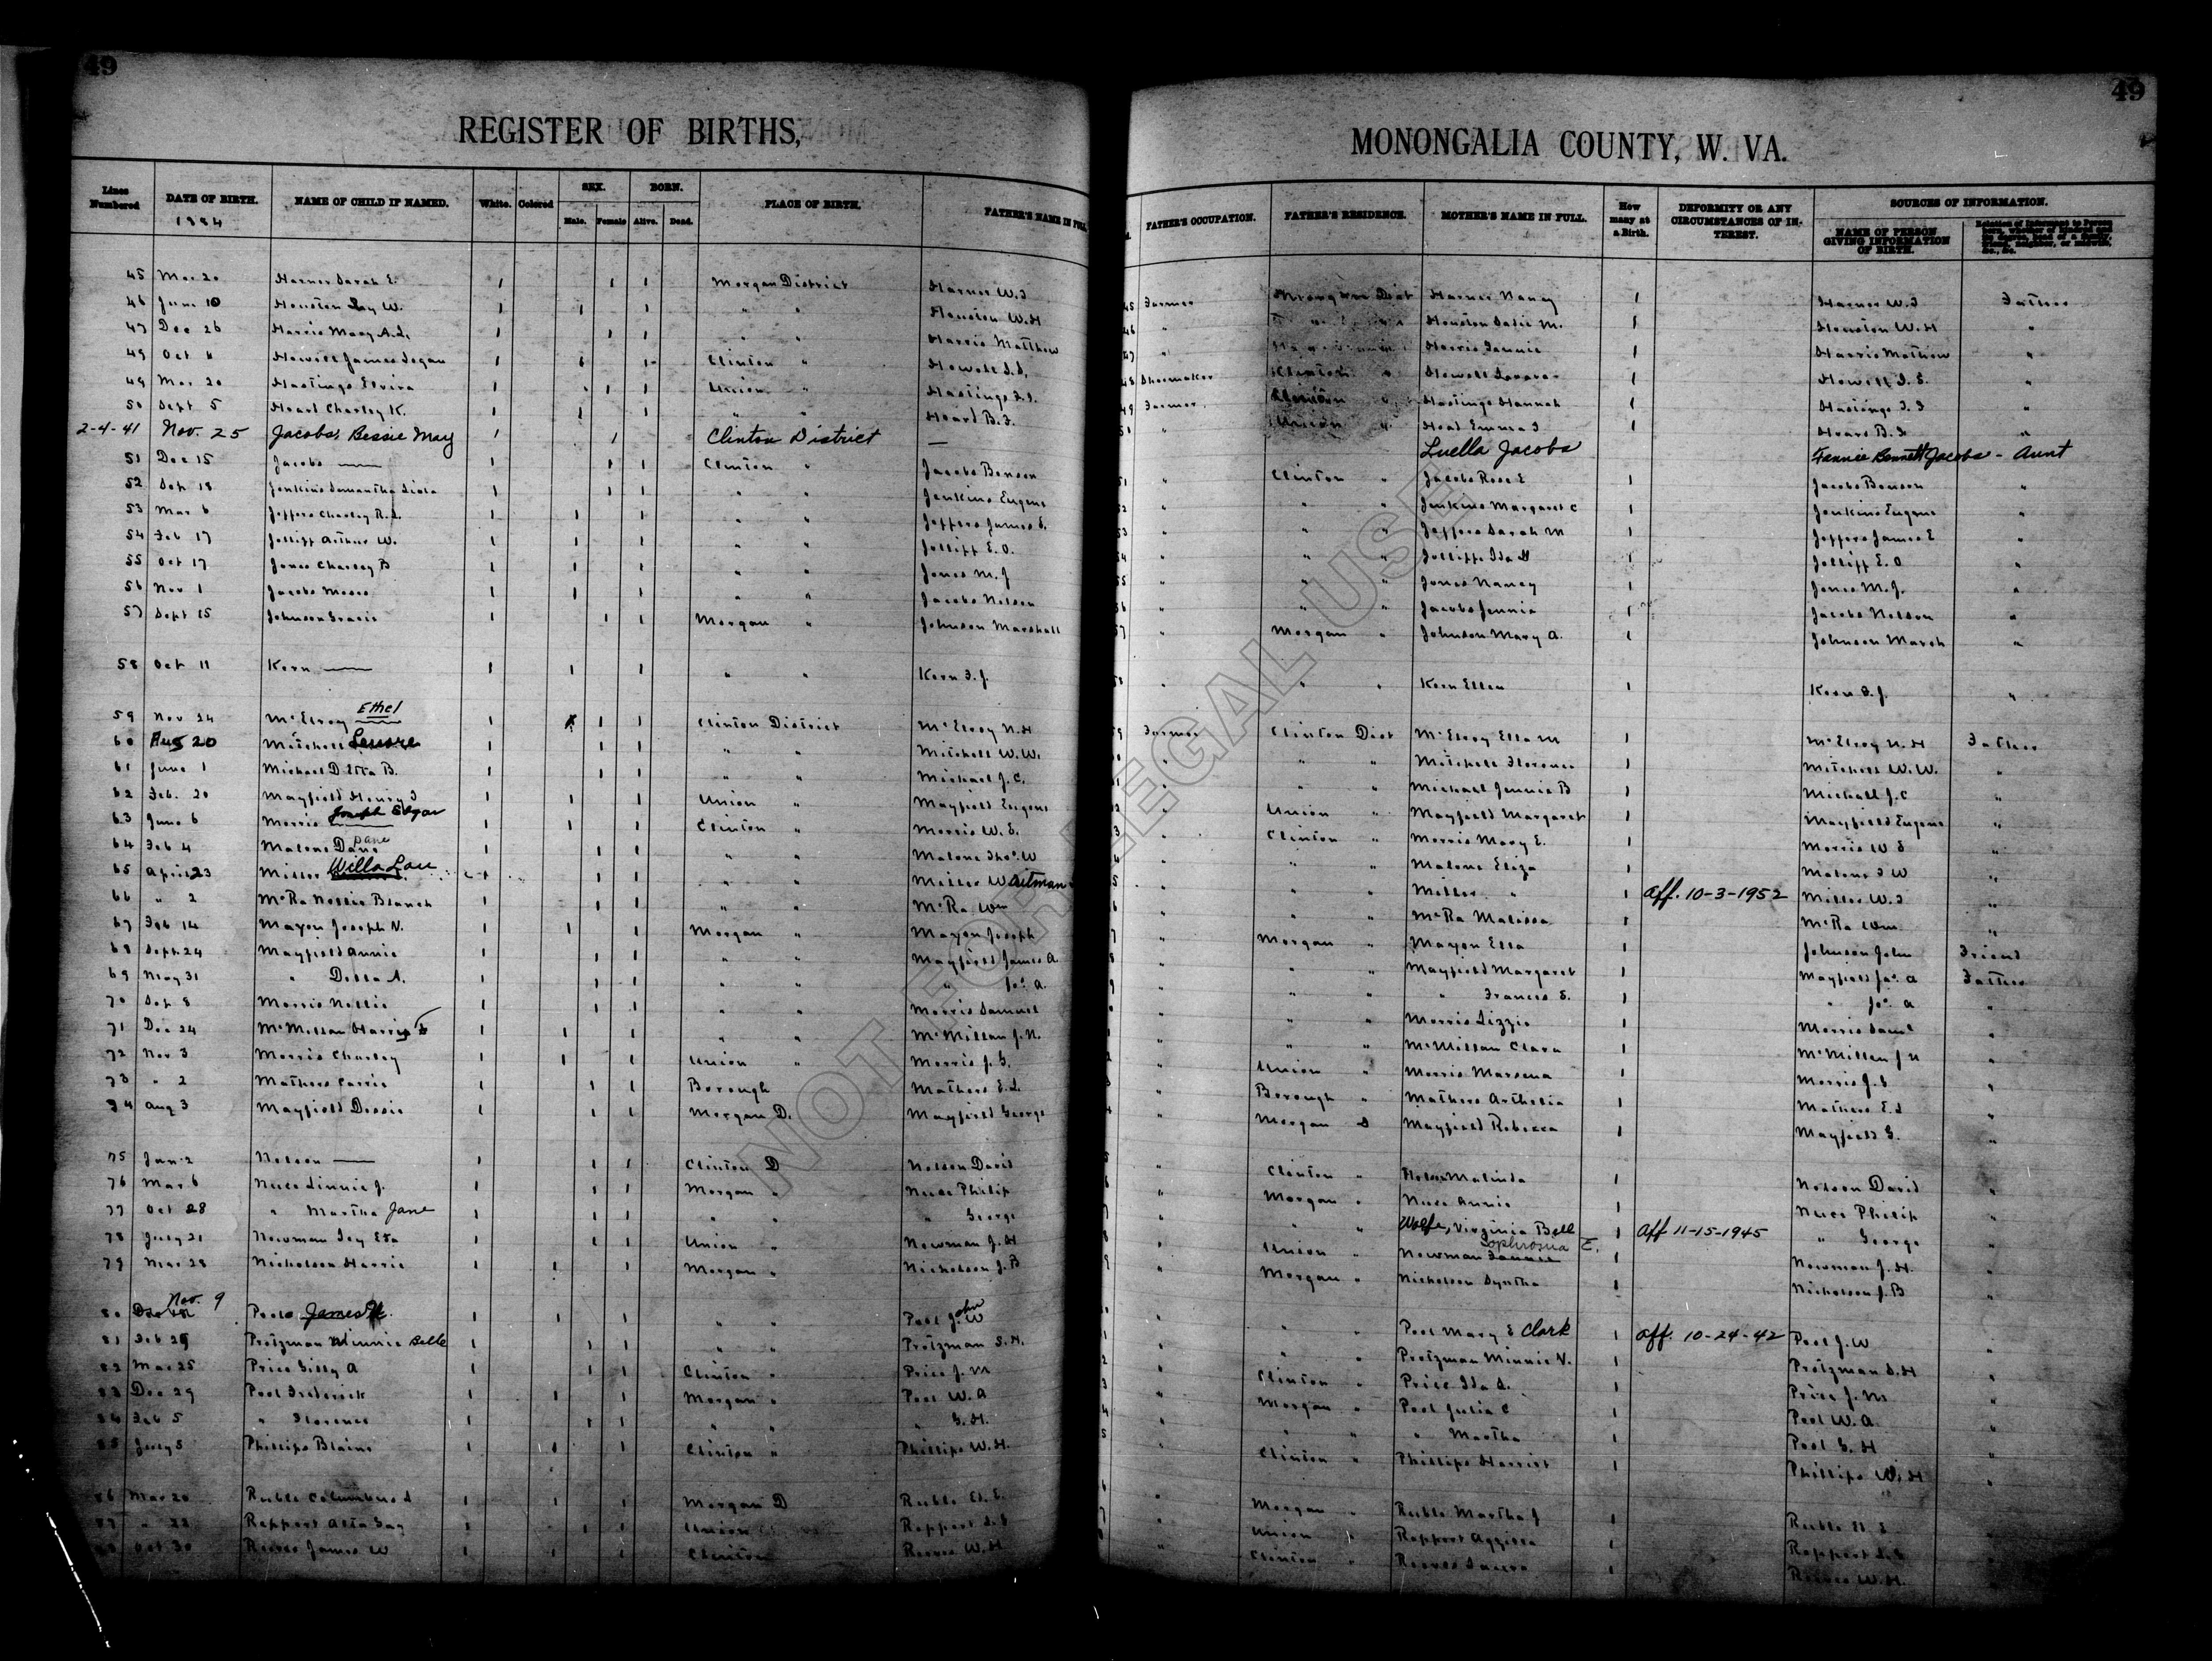 49
49
REGISTER OF BIRTHS,
MONONGALIA COUNTY, W. VA.
Lines Numbered DATE OF BIRTH. NAME OF CHILD IF NAMED. White. Colored SEX. Male. Female BORN. Alive. Dead. PLACE OF BIRTH. FATHER'S NAME IN FULL FATHER'S OCCUPATION. FATHER'S RESIDENCE. MOTHER'S NAME IN FULL. How many at a Birth. DEFORMITY OR ANY CIRCUMSTANCES OF INTEREST. SOURCES OF INFORMATION. NAME OF PERSON GIVING INFORMATION OF BIRTH.
1884
45 Mar 20 Harner Sarah E. 1 1 1 Morgan District Harner W.T 45 Farmer Morgan Dist Harner Nancy 1 Harner W.T Father
46 June 10 Houston Ray W. 1 1 1 " " Houston W.H 46 " Houston Sadie M. 1 Houston W.H "
47 Dec 26 Harris Mary A.L. 1 1 1 " Harris Matthew 47 " Harris Fannie 1 Harris Mathew "
49 Oct 11 Howell James Logan 1 1 1 Clinton " Howell 48 Shoemaker Clinton " Howell 1 Howell "
49 Mar 20 Hastings Elvira 1 1 1 Union " Hastings 49 Farmer Hastings Hannah 1 Hastings "
50 Sept 5 Hoard Charley K. 1 1 1 " " Hoard B.F. " Union " Emma 1 "
2-4-41 Nov. 25 Jacobs, Bessie May 1 1 Clinton District — Luella Jacobs Fannie Bennett Jacobs - Aunt
51 Dec 15 Jacobs — 1 1 1 Clinton " Jacobs Benson " Clinton " Jacobs Rose E 1 Jacobs Benson "
52 Sep 18 Jenkins Samantha 1 1 1 " " Jenkins Eugene " " " Jenkins Margaret C 1 Jenkins Eugene "
53 Mar 6 Jeffers Charley R.L. 1 1 1 " " Jeffers James E. " " " Jeffers Sarah M 1 Jeffers James E "
54 Feb 17 Jolliff Arthur W. 1 1 1 " " Jolliff E.O. " " " Jolliff Ida 1 Jolliff E.O "
55 Oct 17 Jones Charley B 1 1 1 " " Jones M.J " " " Jones Nancy 1 Jones M.J. "
56 Nov 1 Jacobs Moses 1 1 1 " " Jacobs Nelson " " " Jacobs Jennie 1 Jacobs Nelson "
57 Sept 15 Johnson Gracie 1 1 1 Morgan " Johnson Marshall " Morgan " Johnson Mary A. 1 Johnson Marsh "
58 Oct 11 Kern — 1 1 1 " " Kern " " " Kern Ellen 1 Kern "
59 Nov 24 McElroy Ethel 1 1 1 Clinton District McElroy N.H Farmer Clinton Dist McElroy Ella M 1 McElroy N.H Father
60 Aug 20 Mitchell Lenore 1 1 1 " " Mitchell W.W. " " Mitchell Florence 1 Mitchell W.W. "
61 June 1 Michael D Etta B. 1 1 1 " " Michael J.C. " " Michael Jennie B 1 Michael J.C "
62 Feb. 20 Mayfield Henry 1 1 1 Union " Mayfield Eugene " Union " Mayfield Margaret 1 Mayfield Eugene "
63 June 6 Morris Joseph Edgar 1 1 1 Clinton " Morris W.E. " Clinton " Morris Mary E. 1 Morris W E "
64 Feb 4 Malone Dane 1 1 1 " " Malone Thos. W " " " Malone Eliza 1 Malone T W "
65 April 23 Miller Willa Lou 1 1 1 " " Miller Waitman " " " Miller " 1 Aff. 10-3-1952 Miller W.T "
66 " 2 McRa Nellie Blanch 1 1 1 " " McRa Wm " " " McRa Malissa 1 McRa Wm "
67 Feb 14 Mayon Joseph N. 1 1 1 Morgan " Mayon Joseph " Morgan " Mayon Ella 1 Johnson John Friend
68 Sept. 24 Mayfield Annie 1 1 1 " " Mayfield James A. " " " Mayfield Margaret 1 Mayfield Jas. A Father
69 May 31 " Della A. 1 1 1 " " " Jas. A. " " " " Frances E. 1 " Jas. A "
70 Sep 8 Morris Nellie 1 1 1 " " Morris Samuel " " " Morris Lizzie 1 Morris Saml "
71 Dec 24 McMillan Harry 1 1 1 " " McMillan J.N. " " " McMillan Clara 1 McMillan J N "
72 Nov 3 Morris Charley 1 1 1 Union " Morris J.G. " Union " Morris Marsena 1 Morris J.G "
73 " 2 Mathers Carrie 1 1 1 Borough Mathers E.L. " Borough " Mathers Arthelia 1 Mathers E.L "
74 Aug 3 Mayfield Dessie 1 1 1 Morgan D. Mayfield George " Morgan D Mayfield Rebecca 1 Mayfield G. "
75 Jan 2 Nelson — 1 1 1 Clinton D Nelson David " Clinton " Malinda 1 Nelson David "
76 Mar 6 Nuce Linnie J. 1 1 1 Morgan " Nuce Philip " Morgan " Nuce Annie 1 Nuce Philip "
77 Oct 28 " Martha Jane 1 1 1 " " " George " " " Wolfe, Virginia Bell 1 Aff 11-15-1945 " George "
78 July 21 Newman Icy Eta 1 1 1 Union " Newman J.H " Union " Newman Fannie Sophrosna E. 1 Newman J.H. "
79 Mar 28 Nicholson Harrie 1 1 1 Morgan " Nicholson J.B " Morgan " Nicholson Syntha 1 Nicholson J.B "
80 Nov. 9 Pool James W. 1 1 1 " " Pool John W " " " Pool Mary E Clark 1 Aff. 10-24-42 Pool J.W "
81 Feb 29 Protzman Minnie Belle 1 1 1 " " Protzman S.H. " " " Protzman Minnie V. 1 Protzman S.H "
82 Mar 25 Price A 1 1 1 Clinton " Price J.M " Clinton " Price Ida 1 Price J.M "
83 Dec 29 Pool Frederick 1 1 1 Morgan " Pool W.A " Morgan " Pool Julia C 1 Pool W.A. "
84 Feb 5 " Florence 1 1 1 " " " G.H. " " " " Martha 1 Pool G.H "
85 July 5 Phillips Blaine 1 1 1 Clinton " Phillips W.H. " Clinton " Phillips Harriet 1 Phillips W.H "
86 Mar 20 Ruble Columbus 1 1 1 Morgan D Ruble " Morgan " Ruble Martha J 1 Ruble "
87 " 22 Reppert Alta Gay 1 1 1 Union Reppert " Union " Reppert 1 Reppert "
Oct 30 Reeves James W 1 1 1 Clinton Reeves W.H " Clinton " Reeves Laura 1 Reeves W.H.
NOT FOR LEGAL USE